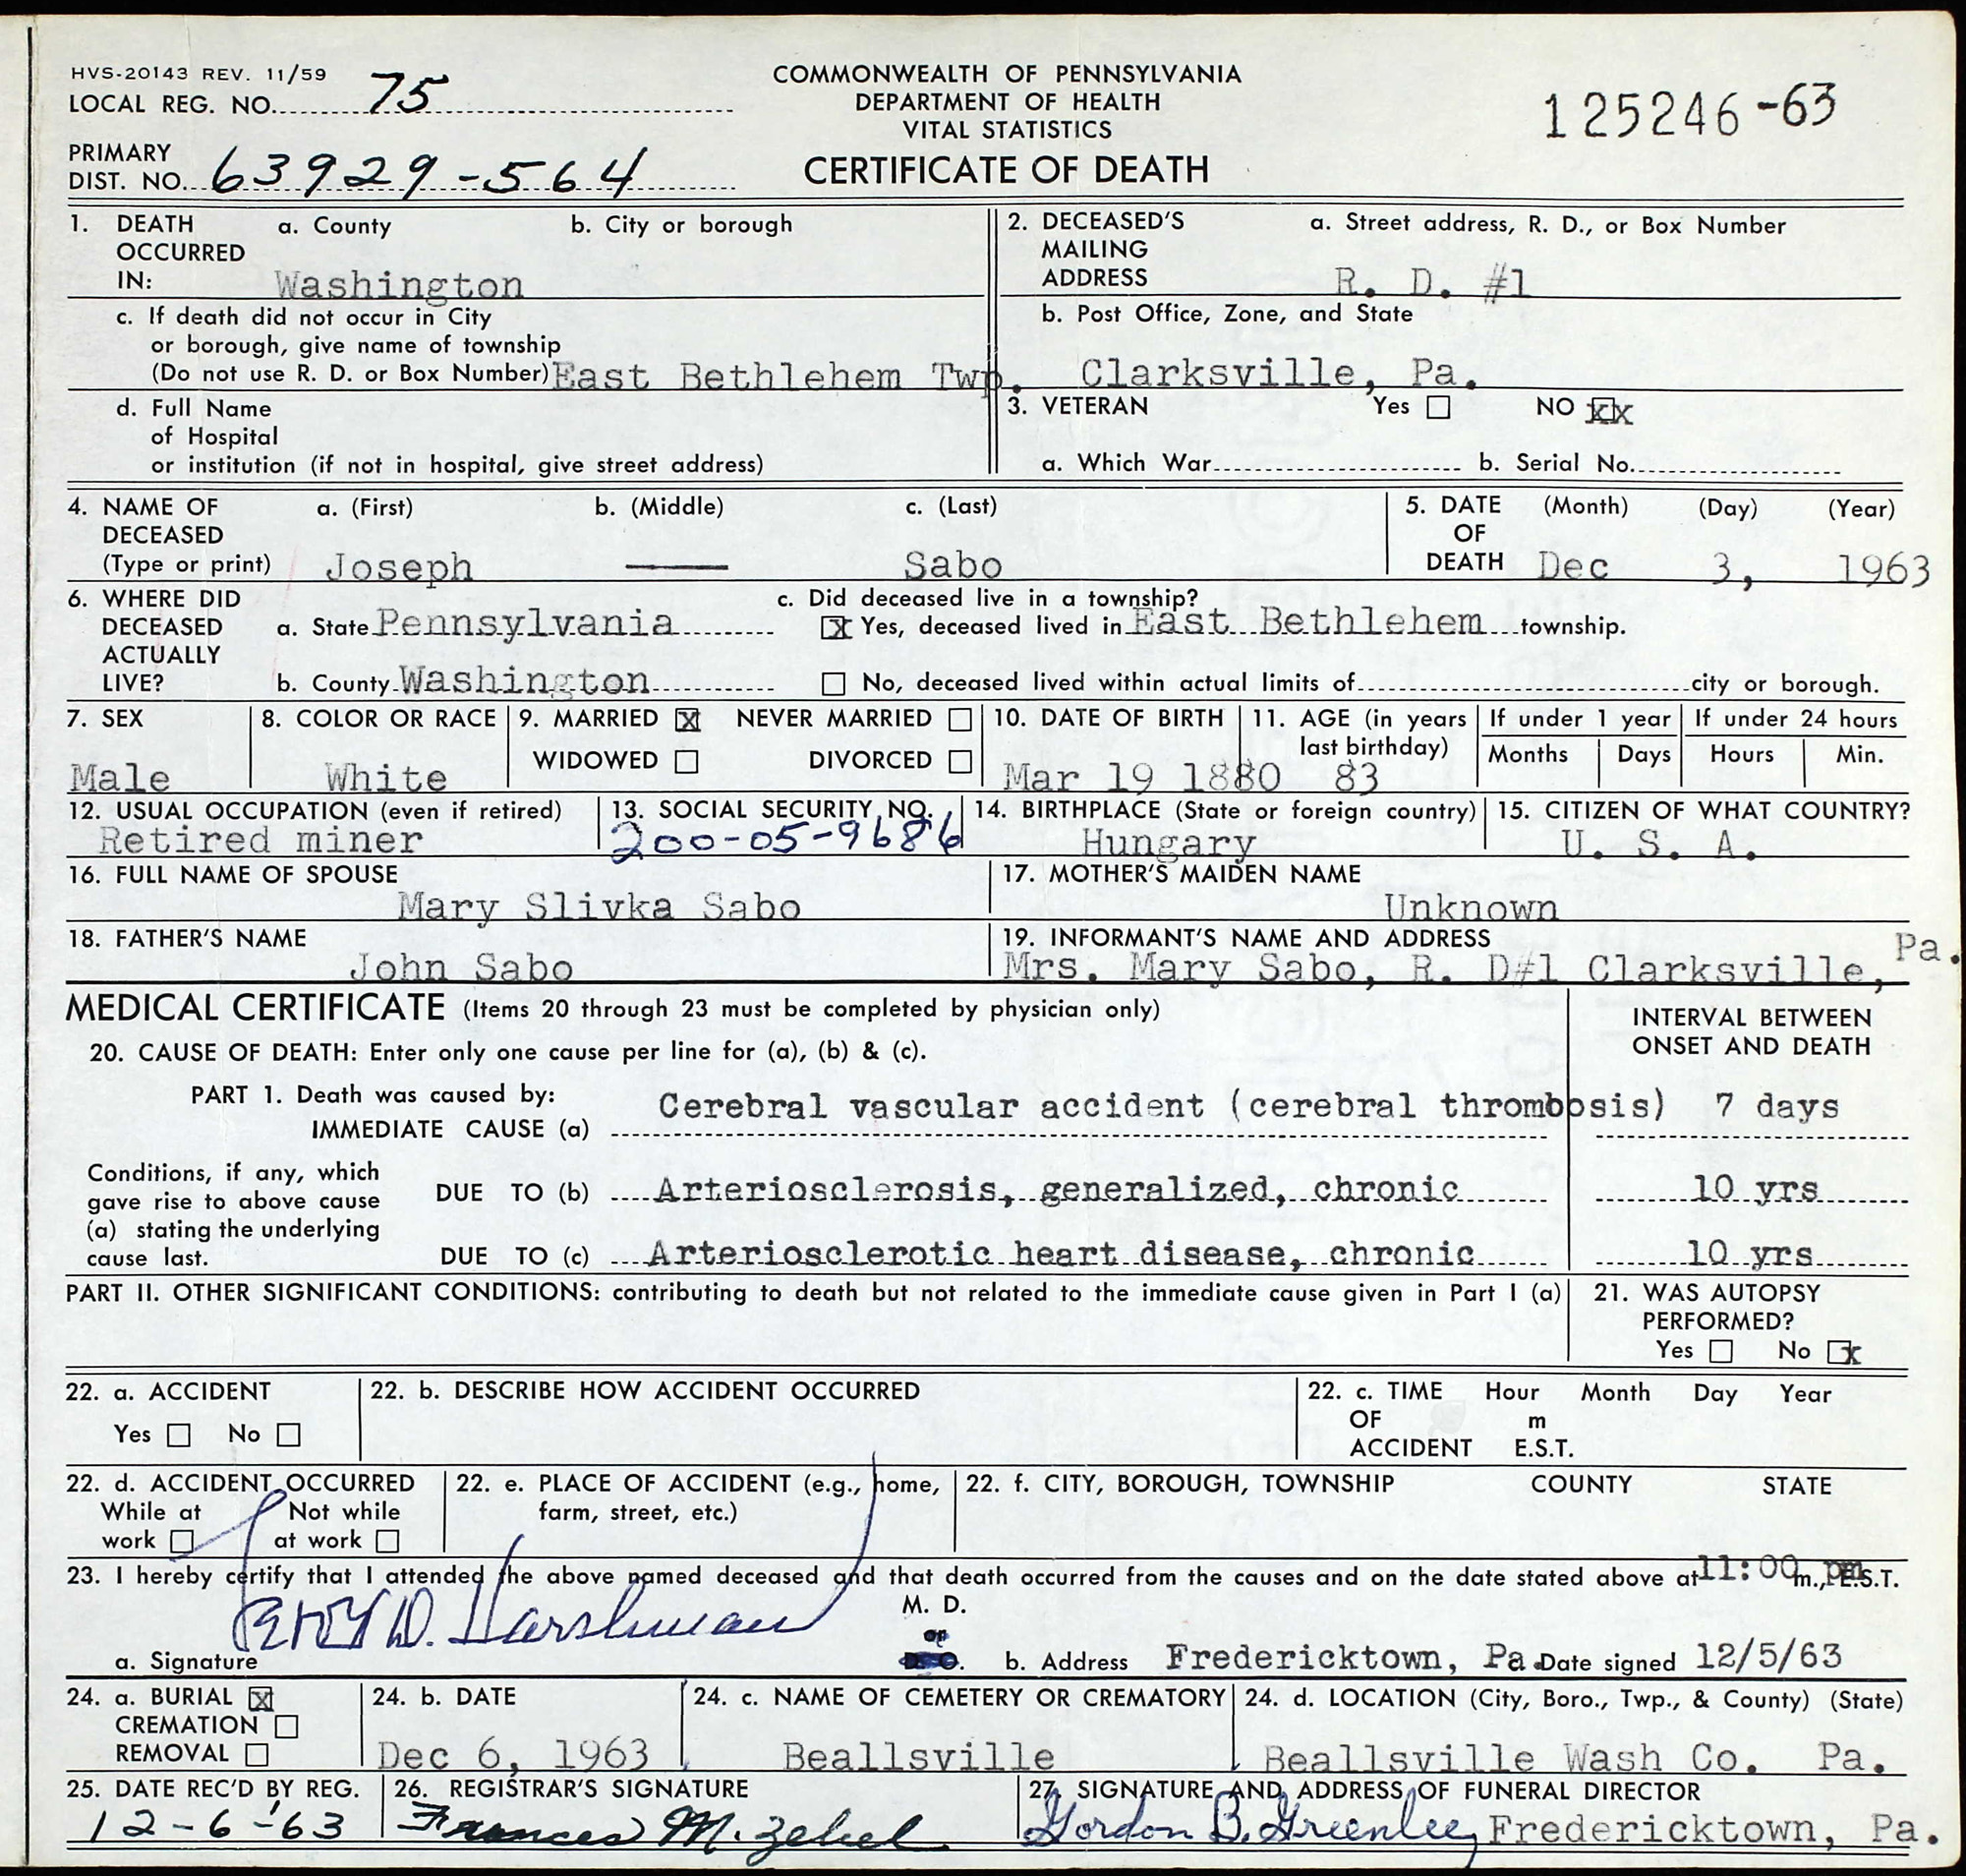 HVS-20143 REV. 11/59
LOCAL REG. NO. 75
COMMONWEALTH OF PENNSYLVANIA
DEPARTMENT OF HEALTH
VITAL STATISTICS
CERTIFICATE OF DEATH
125246-63
PRIMARY
DIST. NO. 63929-564
1. DEATH OCCURRED IN: a. County b. City or borough
Washington
c. If death did not occur in City
or borough, give name of township
(Do not use R. D. or Box Number) East Bethlehem Twp.
d. Full Name
of Hospital
or institution (if not in hospital, give street address)
2. DECEASED'S MAILING ADDRESS a. Street address, R. D., or Box Number
R. D. #1
b. Post Office, Zone, and State
Clarksville, Pa.
3. VETERAN Yes NO xx
a. Which War b. Serial No.
4. NAME OF DECEASED (Type or print) a. (First) b. (Middle) c. (Last)
Joseph — Sabo
5. DATE OF DEATH (Month) (Day) (Year)
Dec 3, 1963
6. WHERE DID DECEASED ACTUALLY LIVE?
a. State Pennsylvania
b. County Washington
c. Did deceased live in a township?
X Yes, deceased lived in East Bethlehem township.
No, deceased lived within actual limits of city or borough.
7. SEX
Male
8. COLOR OR RACE
White
9. MARRIED X NEVER MARRIED
WIDOWED DIVORCED
10. DATE OF BIRTH
Mar 19 1880
11. AGE (in years last birthday)
83
If under 1 year
Months Days
If under 24 hours
Hours Min.
12. USUAL OCCUPATION (even if retired)
Retired miner
13. SOCIAL SECURITY NO.
200-05-9686
14. BIRTHPLACE (State or foreign country)
Hungary
15. CITIZEN OF WHAT COUNTRY?
U. S. A.
16. FULL NAME OF SPOUSE
Mary Slivka Sabo
17. MOTHER'S MAIDEN NAME
Unknown
18. FATHER'S NAME
John Sabo
19. INFORMANT'S NAME AND ADDRESS
Mrs. Mary Sabo, R. D#1 Clarksville, Pa.
MEDICAL CERTIFICATE (Items 20 through 23 must be completed by physician only)
INTERVAL BETWEEN
ONSET AND DEATH
20. CAUSE OF DEATH: Enter only one cause per line for (a), (b) & (c).
PART 1. Death was caused by:
IMMEDIATE CAUSE (a) Cerebral vascular accident (cerebral thrombosis) 7 days
Conditions, if any, which
gave rise to above cause
(a) stating the underlying
cause last.
DUE TO (b) Arteriosclerosis, generalized, chronic 10 yrs
DUE TO (c) Arteriosclerotic heart disease, chronic 10 yrs
PART II. OTHER SIGNIFICANT CONDITIONS: contributing to death but not related to the immediate cause given in Part I (a)
21. WAS AUTOPSY
PERFORMED?
Yes No x
22. a. ACCIDENT
Yes No
22. b. DESCRIBE HOW ACCIDENT OCCURRED
22. c. TIME OF ACCIDENT Hour Month Day Year
m
E.S.T.
22. d. ACCIDENT OCCURRED
While at work Not while at work
22. e. PLACE OF ACCIDENT (e.g., home,
farm, street, etc.)
22. f. CITY, BOROUGH, TOWNSHIP COUNTY STATE
23. I hereby certify that I attended the above named deceased and that death occurred from the causes and on the date stated above at 11:00 m., pm E.S.T.
a. Signature D. Harshman
M. D.
or
D. O.
b. Address Fredericktown, Pa. Date signed 12/5/63
24. a. BURIAL X
CREMATION
REMOVAL
24. b. DATE
Dec 6, 1963
24. c. NAME OF CEMETERY OR CREMATORY
Beallsville
24. d. LOCATION (City, Boro., Twp., & County) (State)
Beallsville Wash Co. Pa.
25. DATE REC'D BY REG.
12-6-'63
26. REGISTRAR'S SIGNATURE
Frances M. Zebel
27. SIGNATURE AND ADDRESS OF FUNERAL DIRECTOR
Gordon B. Greenlee, Fredericktown, Pa.